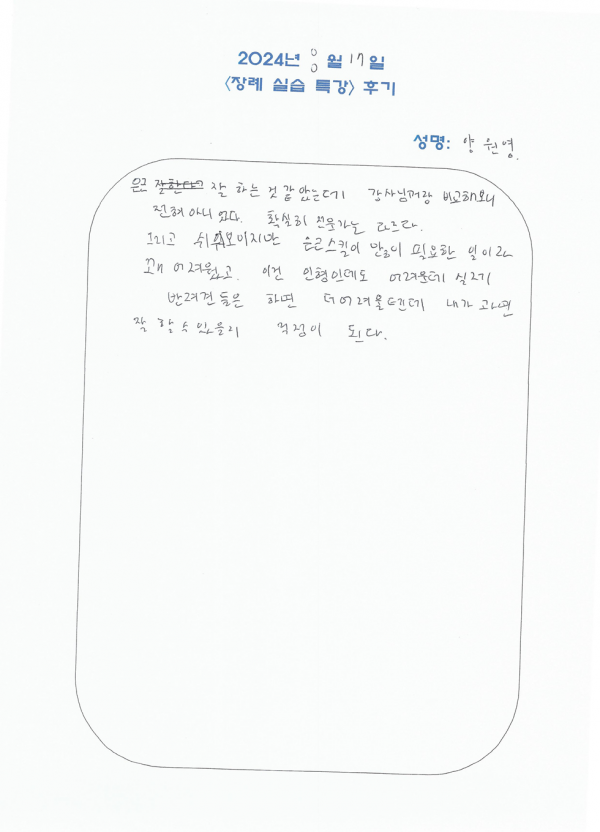 2024년 8월 17일
<장례 실습 특강> 후기
성명: 양 원영.
은근 잘한다? 잘 하는 것 같았는데 강사님꺼랑 비교해보니
전혀 아니였다. 확실히 전문가는 다르다.
그리고 쉬워보이지만 은근 스킬이 많이 필요한 일이라
꽤 어려웠고. 이건 인형인데도 어려운데 실제
반려견들은 하면 더 어려울텐데 내가 과연
잘 할 수 있을지 걱정이 된다.